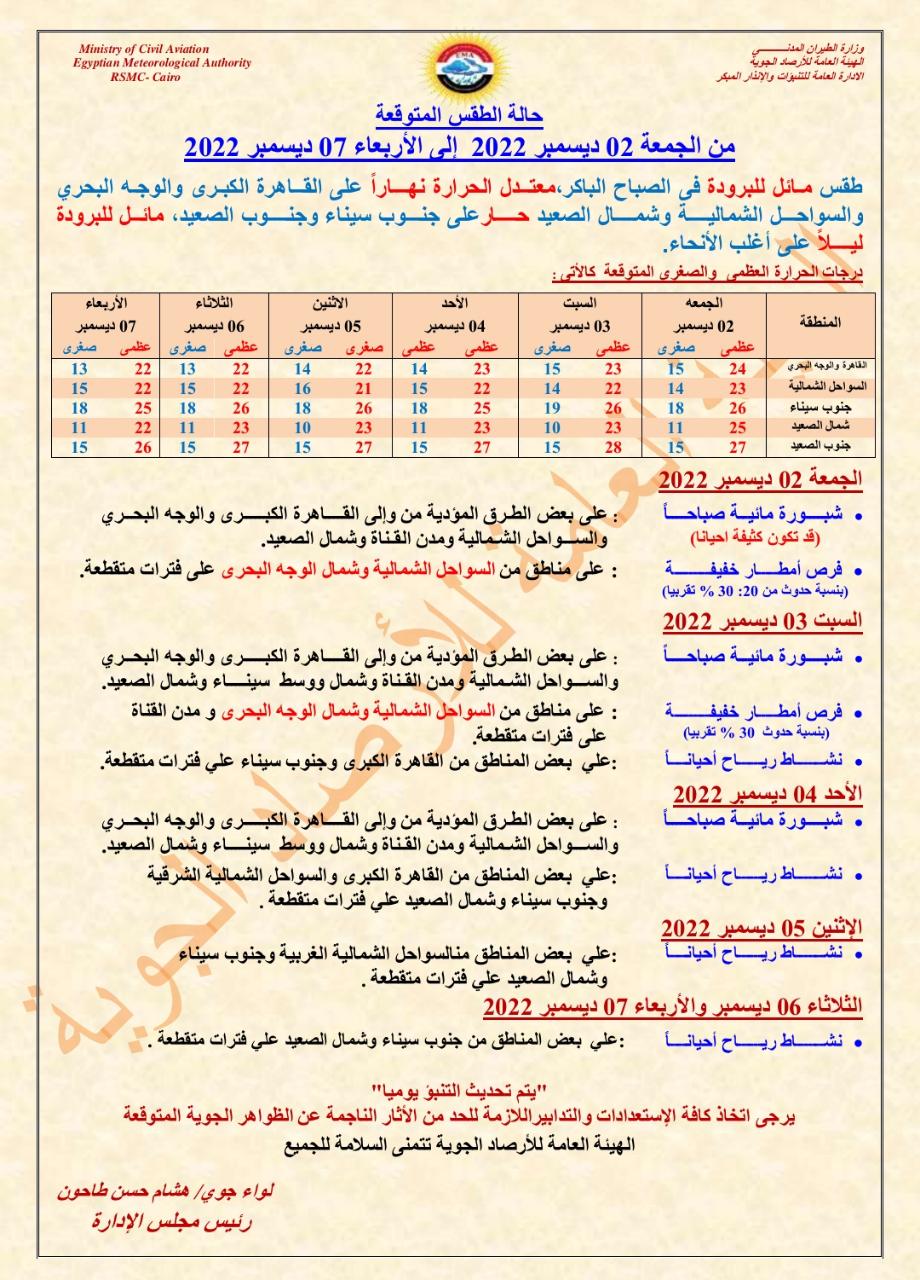 Ministry of Civil Aviation
Egyptian Meteorological Authority
RSMC- Cairo
وزارة الطيران المدنـــــي
الهيئة العامة للأرصاد الجوية
الادارة العامة للتنبؤات والإنذار المبكر
EMA
حالة الطقس المتوقعة
من الجمعة 02 ديسمبر 2022 إلى الأربعاء 07 ديسمبر 2022
طقس مـائل للبرودة فى الصباح الباكر،معتـدل الحرارة نهـاراً على القـاهرة الكبـرى والوجـه البحري
والسواحـل الشماليـــة وشمـــال الصعيد حـــارعلى جنـــوب سيناء وجنـــوب الصعيد، مائـل للبرودة
ليـــلاً على أغلب الأنحاء.
درجات الحرارة العظمى والصغرى المتوقعة كالأتى:
المنطقة الجمعه السبت الأحد الاثنين الثلاثاء الأربعاء
02 ديسمبر 03 ديسمبر 04 ديسمبر 05 ديسمبر 06 ديسمبر 07 ديسمبر
عظمى صغرى عظمى صغرى عظمى عظمى صغرى صغرى عظمى صغرى عظمى صغرى
القاهرة والوجه البحري 24 15 23 15 23 14 22 14 22 13 22 13
السواحل الشمالية 23 14 22 14 22 15 21 16 22 15 22 15
جنوب سيناء 26 18 26 19 25 18 26 18 26 18 25 18
شمال الصعيد 25 11 23 10 23 11 23 10 23 11 22 11
جنوب الصعيد 27 15 28 15 27 15 27 15 27 15 26 15
الجمعة 02 ديسمبر 2022
• شبـــورة مائيـــة صباحـــاً : على بعض الطرق المؤدية من وإلى القـــاهرة الكبـــرى والوجه البحـــري
(قد تكون كثيفة احيانا) والســـواحل الشـمالية ومدن القنـاة وشمال الصعيد.
• فرص أمطـــار خفيفـــة : على مناطق من السواحل الشمالية وشمال الوجه البحرى على فترات متقطعة.
(بنسبة حدوث من 20: 30 % تقريبا)
السبت 03 ديسمبر 2022
• شبـــورة مائيـــة صباحـــاً : على بعض الطرق المؤدية من وإلى القـــاهرة الكبـــرى والوجه البحـــري
والســـواحل الشـمالية ومدن القنـاة وشمال ووسط سينـــاء وشمال الصعيد.
• فرص أمطـــار خفيفـــة : على مناطق من السواحل الشمالية وشمال الوجه البحرى و مدن القناة
(بنسبة حدوث 30 % تقريبا) على فترات متقطعة.
• نشـــاط ريـــاح أحيانـــاً :علي بعض المناطق من القاهرة الكبرى وجنوب سيناء علي فترات متقطعة.
الأحد 04 ديسمبر 2022
• شبـــورة مائيـــة صباحـــاً : على بعض الطرق المؤدية من وإلى القـــاهرة الكبـــرى والوجه البحـــري
والســـواحل الشـمالية ومدن القنـاة وشمال ووسط سينـــاء وشمال الصعيد.
• نشـــاط ريـــاح أحيانـــاً :علي بعض المناطق من القاهرة الكبرى والسواحل الشمالية الشرقية
وجنوب سيناء وشمال الصعيد علي فترات متقطعة .
الإثنين 05 ديسمبر 2022
• نشـــاط ريـــاح أحيانـــاً :علي بعض المناطق منالسواحل الشمالية الغربية وجنوب سيناء
وشمال الصعيد علي فترات متقطعة .
الثلاثاء 06 ديسمبر والأربعاء 07 ديسمبر 2022
• نشـــاط ريـــاح أحيانـــاً :علي بعض المناطق من جنوب سيناء وشمال الصعيد علي فترات متقطعة .
"يتم تحديث التنبؤ يوميا"
يرجى اتخاذ كافة الإستعدادات والتدابيراللازمة للحد من الأثار الناجمة عن الظواهر الجوية المتوقعة
الهيئة العامة للأرصاد الجوية تتمنى السلامة للجميع
لواء جوي/ هشام حسن طاحون
رئيس مجلس الإدارة
الهيئة العامة للأرصاد الجوية